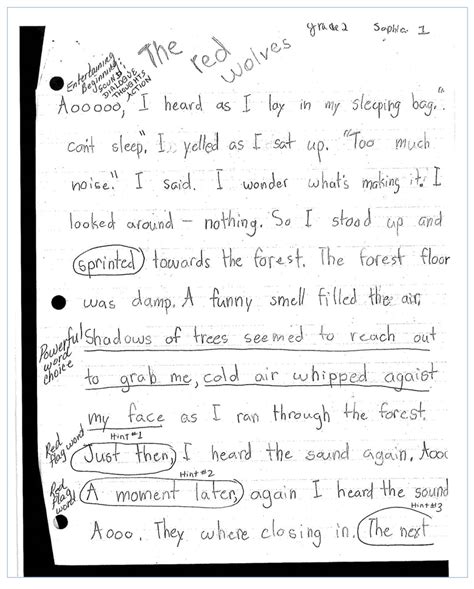 grade 2 Sophia 1
The red wolves
Entertaining
Beginning:
SOUNDS
DIALOGUE
THOUGHTS
ACTION
Aooooo, I heard as I lay in my sleeping bag. "I
can't sleep." I yelled as I sat up. "Too much
noise." I said. I wonder what's making it. I
looked around – nothing. So I stood up and
sprinted towards the forest. The forest floor
was damp. A funny smell filled the air.
Powerful
word
choice
Shadows of trees seemed to reach out
to grab me, cold air whipped agaist
my face as I ran through the forest.
Red
flag word
Hint #1
Just then, I heard the sound again, Aooo
Hint #2
Red
flag
word
A moment later, again I heard the sound
Hint #3
Aooo. They where closing in. The next